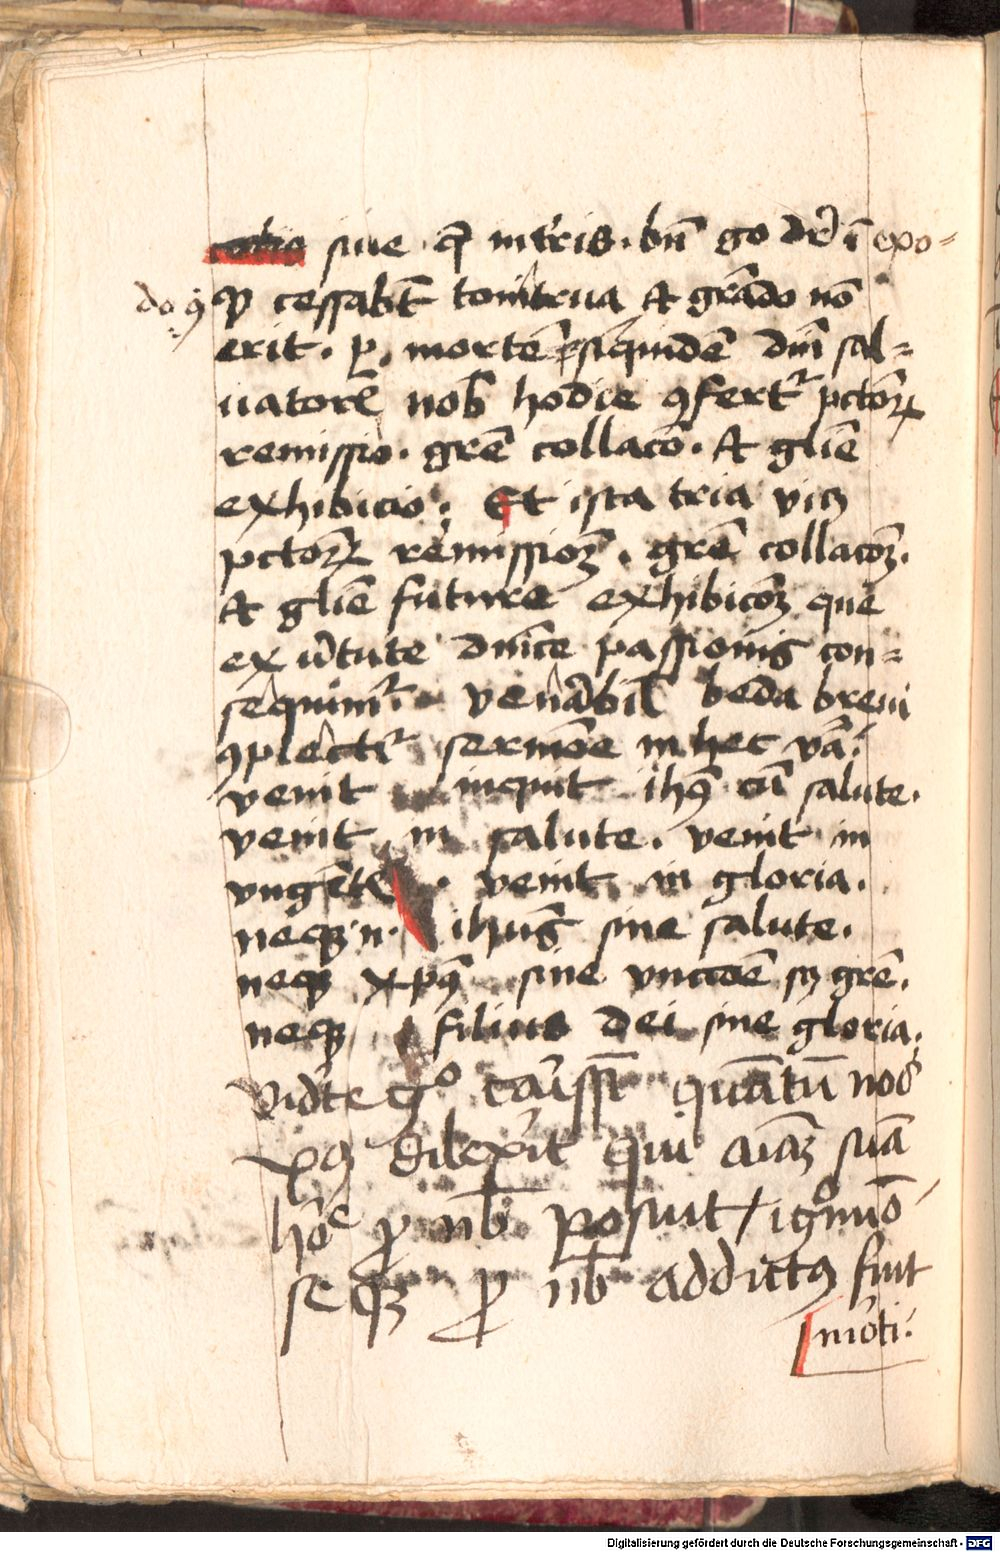 siue q̈ mr̄ris. bn̄ go dr̄ ī expo=
do 9 ꝙ cessabūt tonitrua et grādo nō
erit. p. mortē siquidē dn̄i sal=
uatorē nob̄ hodie ꝯfertᷣ pctōꝝ
remissio. grē collacō. et gl̄ie
exhibicio. Et ista tria vicꝫ
pctōꝝ remissionꝫ. grē collacōꝫ.
et gl̄ie future exhibicōꝫ que
ex v̓tute dn̄ice passionis con=
sequimᷣ. ven̓abil̄ beda breui
ꝯplectiᷣ sermōe in hec v̄ba.
venit inquit ihꝯ cū salute.
venit in salute. venit in
vngētē. venit in gloria.
neqꝫ .n. ihus̄ sine salute.
neqꝫ xpꝯ sine vnctōe sꝫ grē.
neqꝫ filius dei sine gloria.
Vidēte g̊ car̄issī quātū nos
xpꝯ dilexerit qui aīaꝫ suā
hōe ꝓ nb̄ posuit / ignō
seqꝫ ꝓ nb̄ addictꝯ fuit
mōti.
Digitalisierung gefördert durch die Deutsche Forschungsgemeinschaft - DFG